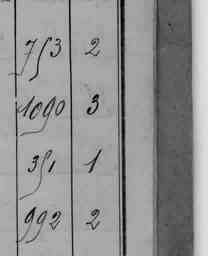 753 2
1090 3
351 1
992 2